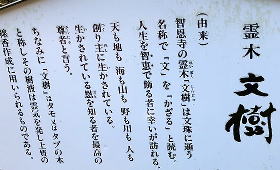 霊木 文樹
(由来)
智恩寺の霊木・文樹は文珠に通う
名称で「文」を「かざる」と読む。
人生を智恵で飾る者に幸いが訪れる。
天も地も 海も山も 野も川も 人も
創り主に生かされている。
生かされている恩を知る者を最高の
尊者と言う。
ちなみに「文樹」はタモ又はタブの木
と称し、その樹液は霊気を発し上質の
線香作成に用いられるものである。